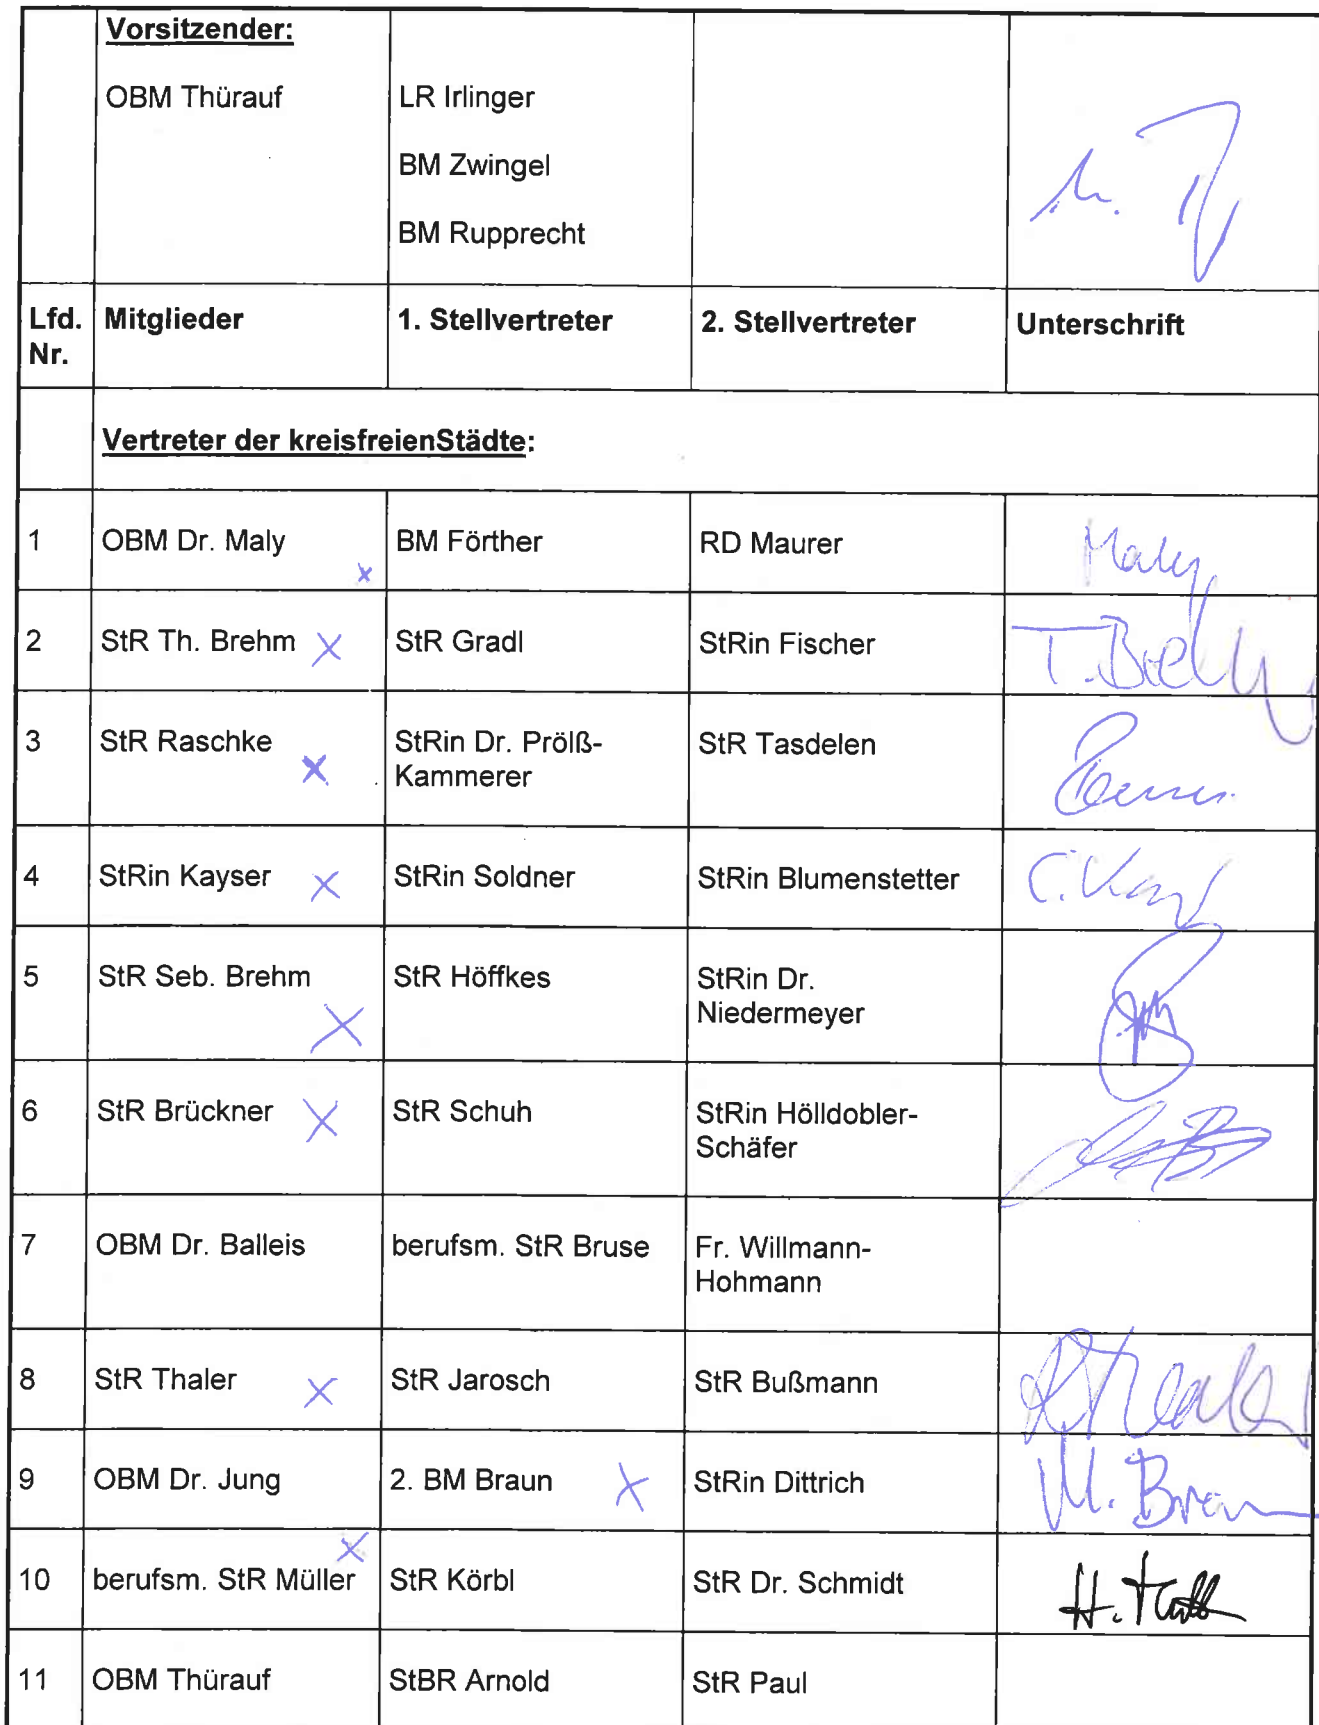 Vorsitzender:
OBM Thürauf LR Irlinger
BM Zwingel
BM Rupprecht
Lfd. Nr. Mitglieder 1. Stellvertreter 2. Stellvertreter Unterschrift
Vertreter der kreisfreienStädte:
1 OBM Dr. Maly x BM Förther RD Maurer Maly
2 StR Th. Brehm x StR Gradl StRin Fischer T. Brehm
3 StR Raschke x StRin Dr. Prölß- StR Tasdelen
Kammerer
4 StRin Kayser x StRin Soldner StRin Blumenstetter
5 StR Seb. Brehm x StR Höffkes StRin Dr.
Niedermeyer
6 StR Brückner x StR Schuh StRin Hölldobler-
Schäfer
7 OBM Dr. Balleis berufsm. StR Bruse Fr. Willmann-
Hohmann
8 StR Thaler x StR Jarosch StR Bußmann
9 OBM Dr. Jung 2. BM Braun x StRin Dittrich M. Braun
10 berufsm. StR Müller x StR Körbl StR Dr. Schmidt
11 OBM Thürauf StBR Arnold StR Paul